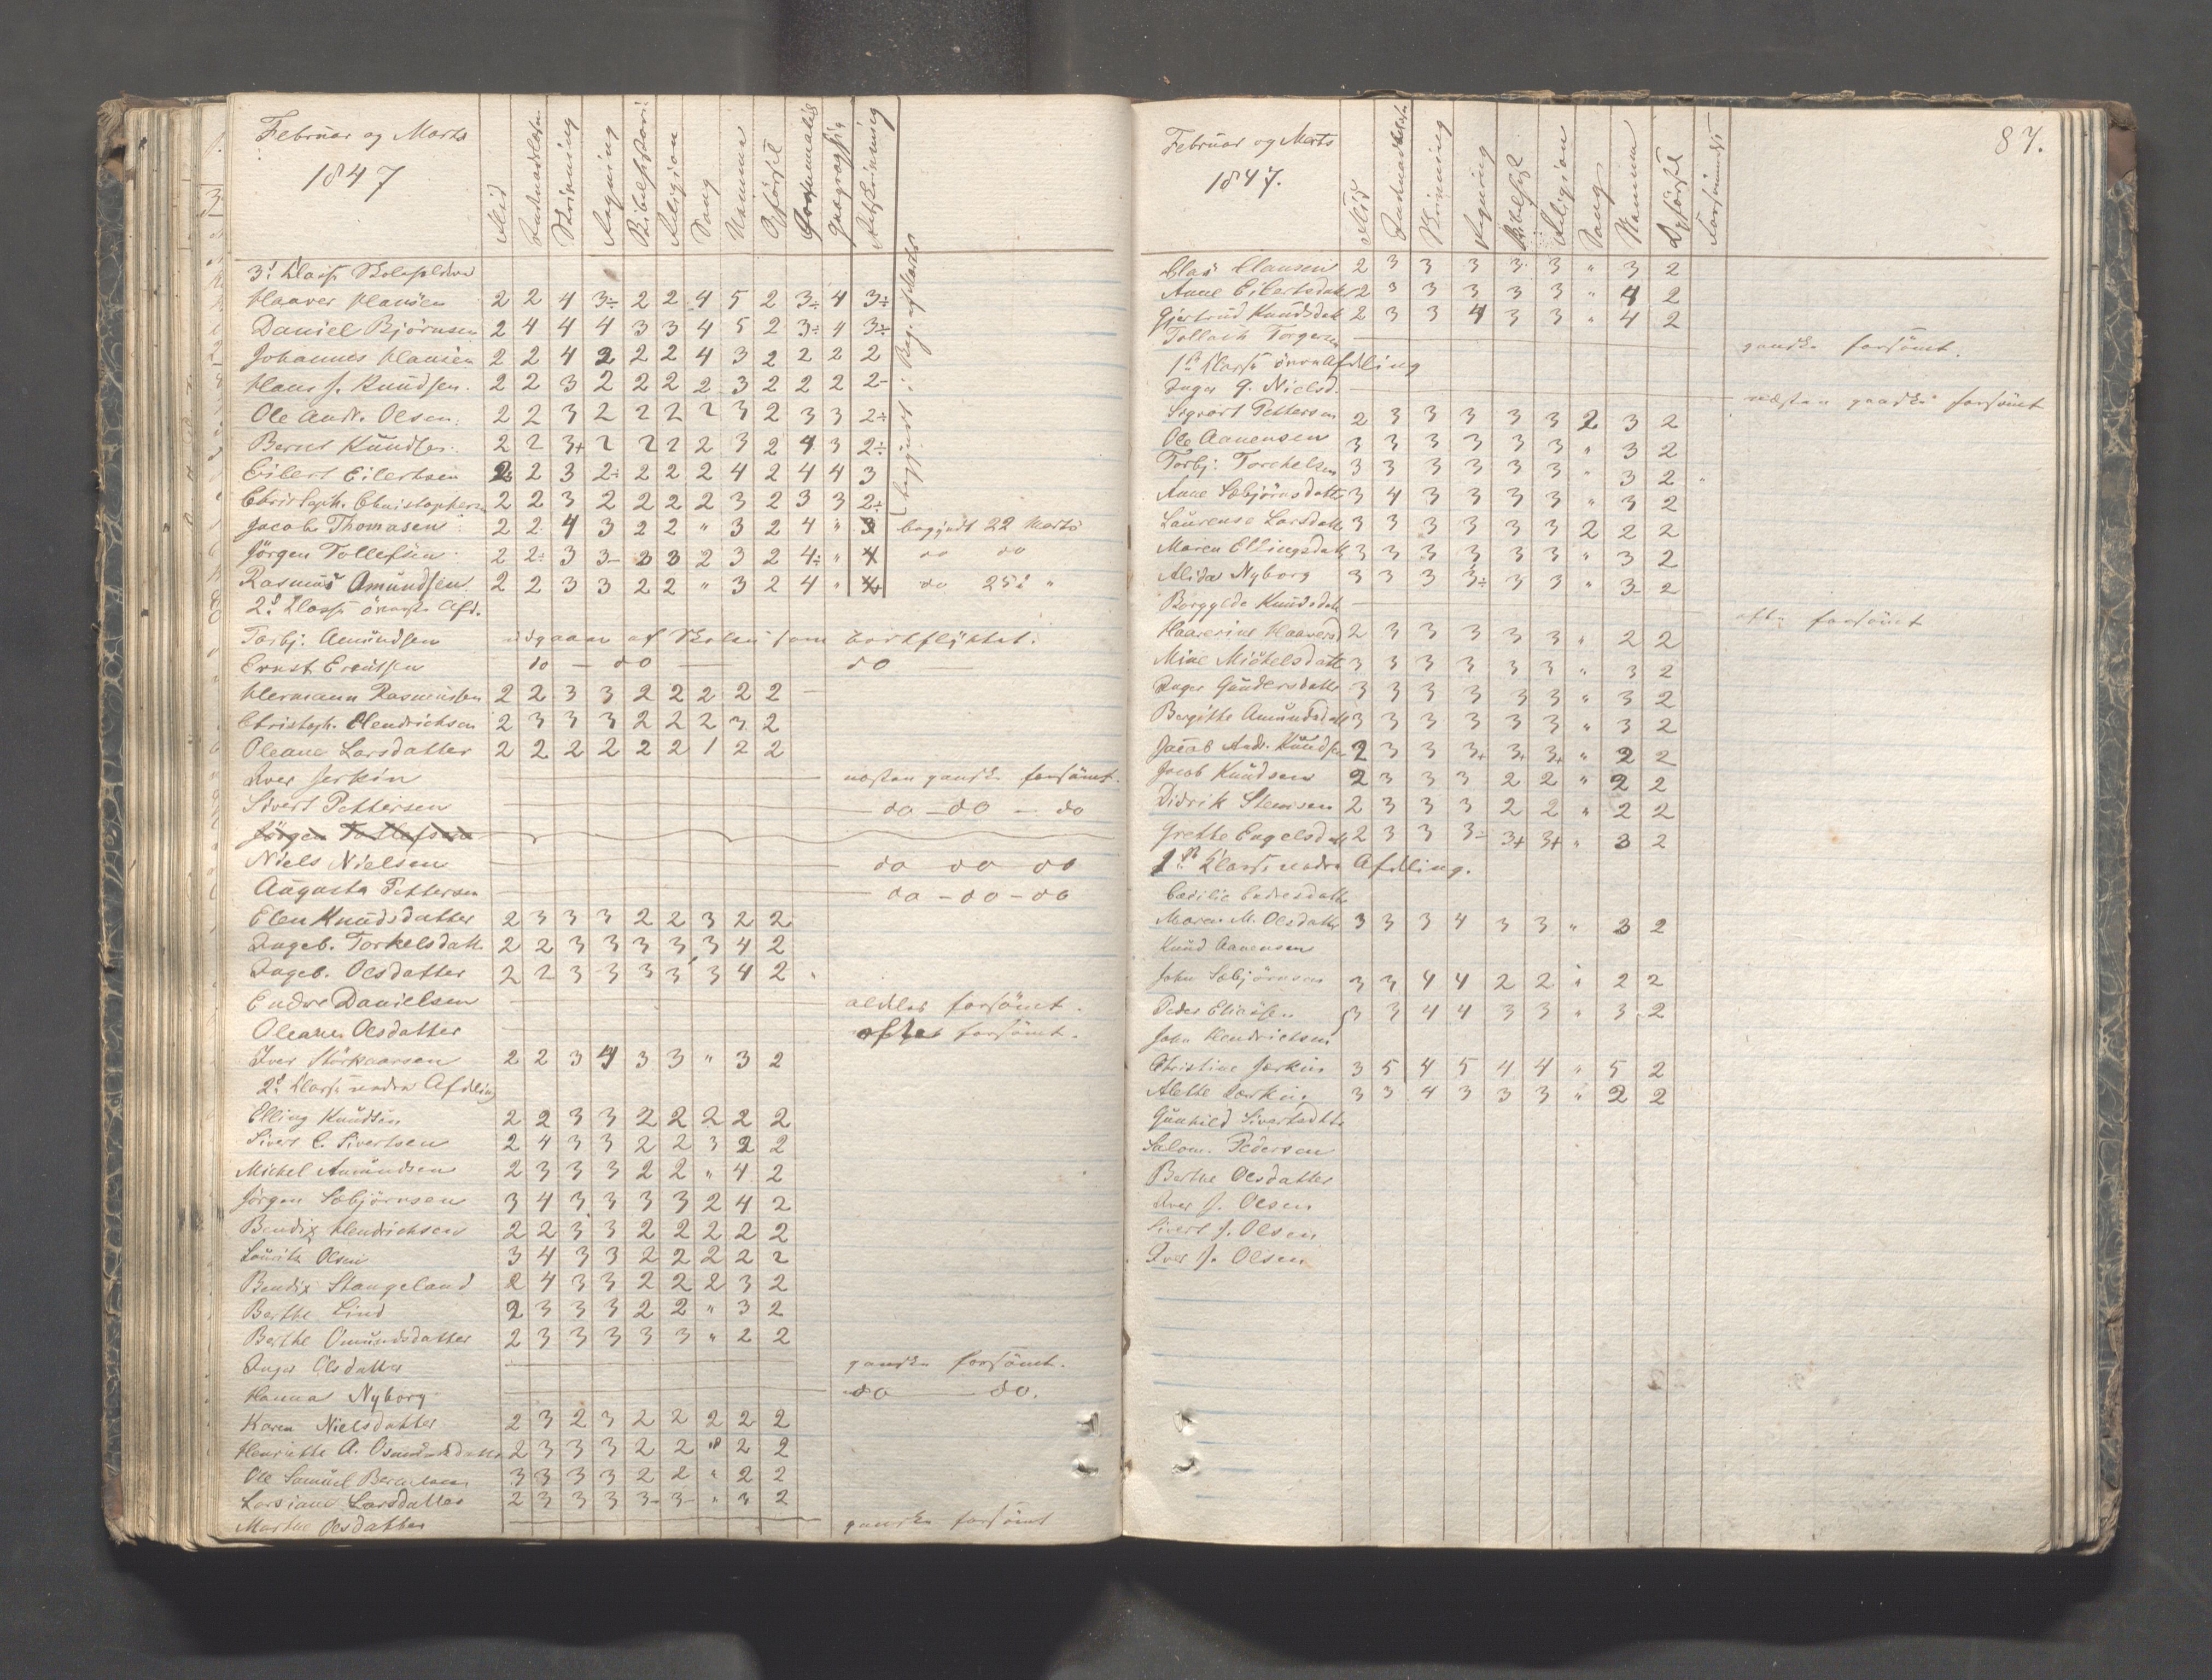 Februar og Marts
1847
Flid
Indenadslæsn
Skrivning
Regning
Bibelhistori
Religion
Sang
Udenad
Opførsel
Grammatik
Geographie
Retskrivning
3d Klasse
Haaver Hansen 2 2 4 3÷ 2 2 4 5 2 3÷ 4 3÷
Daniel Bjørnsen 2 4 4 4 3 3 4 5 2 3÷ 4 3÷
Johannes Hansen 2 2 4 2 2 2 4 3 2 2 2 2
Hans J. Knudsen. 2 2 3 2 2 2 2 3 2 2 2 2-
Ole Andr. Olsen. 2 2 3 2 2 2 2 3 2 3 3 2÷
Bernt Knudsen. 2 2 3+ 2 2 2 2 3 2 4 3 2÷
Eilert Eilertsen 2 2 3 2÷ 2 2 2 4 2 4 4 3
Christoph. Christophersen 2 2 3 2 2 2 2 3 2 3 3 2÷
begyndt i Beg. af Marts
Jacob Thomasen 2 2 4 3 2 2 " 3 2 4 " 3 begyndt 22 Marts
Jörgen Tollefsen 2 2÷ 3 3- 3 3 2 3 2 4÷ " 4 do do
Rasmus Amundsen 2 2 3 3 2 2 " 3 2 4 " 4 do 25 "
2d Klasse överste Afd.
Torbj: Amundsen udgaaen af Skolen som bortflyttet.
Ernst Erntsen do — do — do
Hermann Rasmussen 2 2 3 3 2 2 2 2 2
Christoph. Hendrichsen 2 3 3 3 2 2 2 3 2
Oleane Larsdatter 2 2 2 2 2 2 1 2 2
Iver Jerkin næsten ganske forsömt.
Sivert Pettersen do — do — do
Jörgen Tollefsen
Niels Nielsen do do do
Augusta Pettersen do — do — do
Elen Knudsdatter 2 3 3 3 2 2 3 2 2
Ingeb. Torkelsdatt. 2 2 3 3 3 3 3 4 2
Ingeb. Olsdatter 2 2 3 3 3 3 3 4 2
Endre Danielsen aldeles forsömt.
Oleane Olsdatter ofte forsömt.
Iver Störkaarsen 2 2 3 4 3 3 " 3 2
2d Klasse nedre Afdeling
Elling Knudsen 2 2 3 3 2 2 2 2 2
Sivert C. Sivertsen 2 4 3 3 2 2 3 2 2
Michel Amundsen 2 3 3 3 2 2 " 4 2
Jörgen Sebjörnsen 3 4 3 3 3 3 2 4 2
Bendix Hendrichsen 2 2 3 3 2 2 2 2 2
Lauritz Olsen 3 4 3 3 2 2 2 2 2
Bendix Stangeland 2 4 3 3 2 2 2 3 2
Berthe Lind 2 3 3 3 2 2 " 3 2
Berthe Omundsdatter 2 3 3 3 3 3 " 2 2
Inger Olsdatter ganske forsömt.
Hanna Nyborg do — do.
Karen Nielsdatter 2 3 2 3 2 2 2 2 2
Henriette A. Osmundsdatter 2 3 3 3 2 2 " 2 2
Ole Samuel Berentsen 3 3 3 3 2 2 " 2 2
Larsiane Larsdatter 2 3 3 3 3- 3- " 3 2
Marthe Olsdatter ganske forsömt
Februar og Marts
1847.
87.
Flid
Indenadslæsn
Skrivning
Regning
Bibelhist
Religion
Sang
Udenad
Opførsel
Forsømmelse
Claus Clausen 2 3 3 3 3 3 " 3 2
Anne Eilertsdatt 2 3 3 3 3 3 " 4 2
Gjertrud Knudsdatt 2 3 3 4 3 3 " 4 2
Tollach Torgersen ganske forsömt.
1ste Klasse övre Afdeling
Inger G. Nielsd. næsten ganske forsömt
Sigvart Pettersen 2 3 3 3 3 3 2 3 2
Ole Aanensen 3 3 3 3 3 3 " 3 2
Torbj: Torchelsen 3 3 3 3 3 3 " 3 2
Anne Sebjörnsdatt 3 4 3 3 3 3 " 3 2
Laurense Larsdatt 3 3 3 3 3 3 2 2 2
Maren Ellingsdatt 3 3 3 3 3 3 " 3 2
Alida Nyborg 3 3 3 3÷ 3 3 " 3- 2
Borgylde Knudsdatt ofte forsömt
Haaverine Haaversd 2 3 3 3 3 3 " 2 2
Mine Michelsdatt 3 3 3 3 3 3 " 3 2
Inger Gundersdatter 3 3 3 3 3 3 " 3 2
Bergitte Amundsdatt 3 3 3 3 3 3 " 3 2
Jacob Andr. Knudsen 2 3 3 3+ 3+ 3+ " 2 2
Jacob Knudsen 2 3 3 3 2 2 " 2 2
Didrik Stensen 2 3 3 3 2 2 " 2 2
Grethe Engelsdatt 2 3 3 3- 3+ 3+ " 3 2
1ste Klasse nedre Afdeling.
Cecilie Endresdatt
Maren M. Olsdatter 3 3 3 4 3 3 " 3 2
Knud Aanensen
John Sebjörnsen 3 3 4 4 2 2 " 2 2
Peder Eliasen 3 3 4 4 3 3 " 3 2
John Hendrichsen
Christine Jerkin 3 5 4 5 4 4 " 5 2
Alette Lerkin 3 3 4 3 3 3 " 2 2
Gunhild Sivertsdtt.
Salom. Pedersen
Berthe Olsdatter
Iver J. Olsen
Sivert J. Olsen
Iver J. Olsen